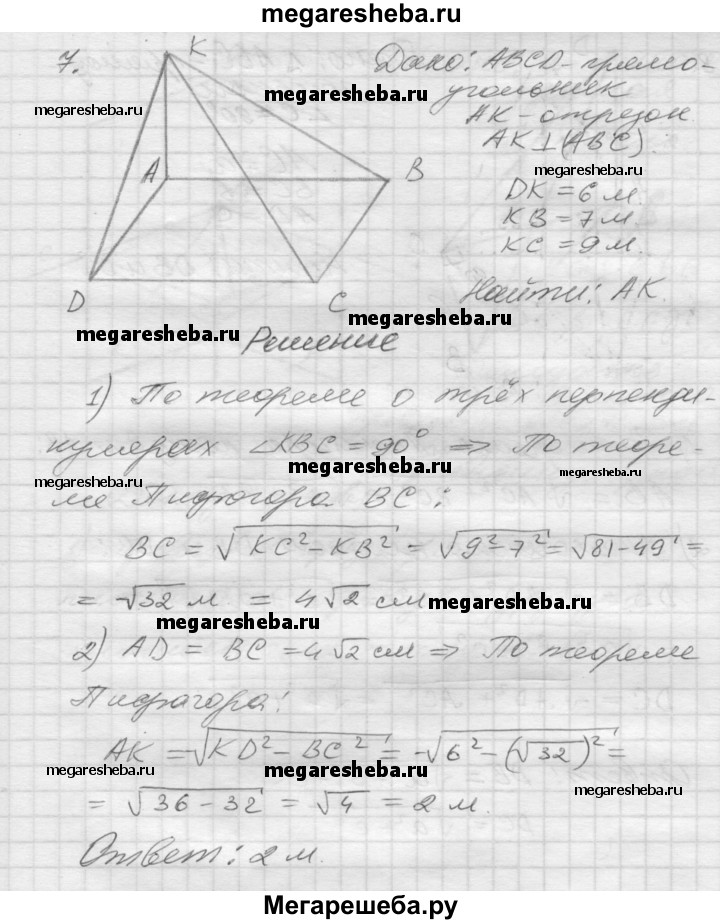 megaresheba.ru
7.
K
A
B
D
C
Дано: ABCD - прямо-
угольник
AK - отрезок.
AK ⊥ (ABC).
DK = 6 м.
KB = 7 м.
KC = 9 м.
Найти: AK.
megaresheba.ru
megaresheba.ru
megaresheba.ru
megaresheba.ru
megaresheba.ru
Решение
1) По теореме о трёх перпенди-
кулярах ∠KBC = 90° ⇒ По теоре-
megaresheba.ru
megaresheba.ru
megaresheba.ru
ме Пифагора BC:
BC = √KC² - KB² = √9² - 7² = √81 - 49 =
= √32 м = 4√2 см
megaresheba.ru
megaresheba.ru
2) AD = BC = 4√2 см ⇒ По теореме
Пифагора:
AK = √KD² - BC² = √6² - (√32)² =
megaresheba.ru
megaresheba.ru
megaresheba.ru
= √36 - 32 = √4 = 2 м.
Ответ: 2 м.
Мегарешеба.ру